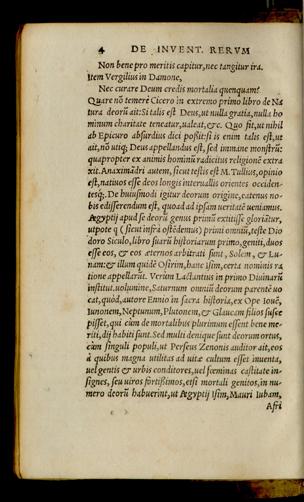 4 DE INVENT. RERVM
Non bene pro meritis capitur, nec tangitur ira.
Item Vergilius in Damone,
Nec curare Deum credis mortalia quenquam?
Quare nō temere Cicero in extremo primo libro de Na
tura deorū ait: Si talis est Deus, ut nulla gratia, nulla ho
minum charitate teneatur, ualeat, &c. Quo fit, ut nihil
ab Epicuro absurdius dici possit: si is enim talis est, ut
ait, nō utiq; Deus appellandus est, sed immane monstrū:
quapropter ex animis hominū radicitus religionē extra
xit. Anaximādri autem, sicut testis est M. Tullius, opinio
est, natiuos esse deos longis interuallis orientes occiden-
tesq;. De huiusmodi igitur deorum origine, eatenus no-
bis edisserendum est, quoad ad ipsam ueritatē ueniamus.
Aegyptij apud se deorū genus primū extitisse gloriātur,
utpote q (sicut infrà ostēdemus) primi omniū, teste Dio
doro Siculo, libro suarū historiarum primo, geniti, duos
esse eos, & eos æternos arbitrati sunt, Solem, & Lu-
nam: & illum quidē Osirim, hanc Isim, certa nominis ra
tione appellarūt. Verùm Lactantius in primo Diuinarū
institut. uolumine, Saturnum omniū deorum parentē uo
cat, quòd, autore Ennio in sacra historia, ex Ope Iouē,
Iunonem, Neptunum, Plutonem, & Glaucam filios susce
pisset, qui cùm de mortalibus plurimum essent bene me-
riti, dij habiti sunt. Sed multi denique sunt deorum ortus,
cùm singuli populi, ut Perseus Zenonis auditor ait, eos
à quibus magna utilitas ad uitæ cultum esset inuenta,
uel gentis & urbis conditores, uel fœminas castitate in-
signes, seu uiros fortißimos, etsi mortali genitos, in nu-
mero deorū habuerint, ut Aegyptij Isim, Mauri Iubam,
Afri